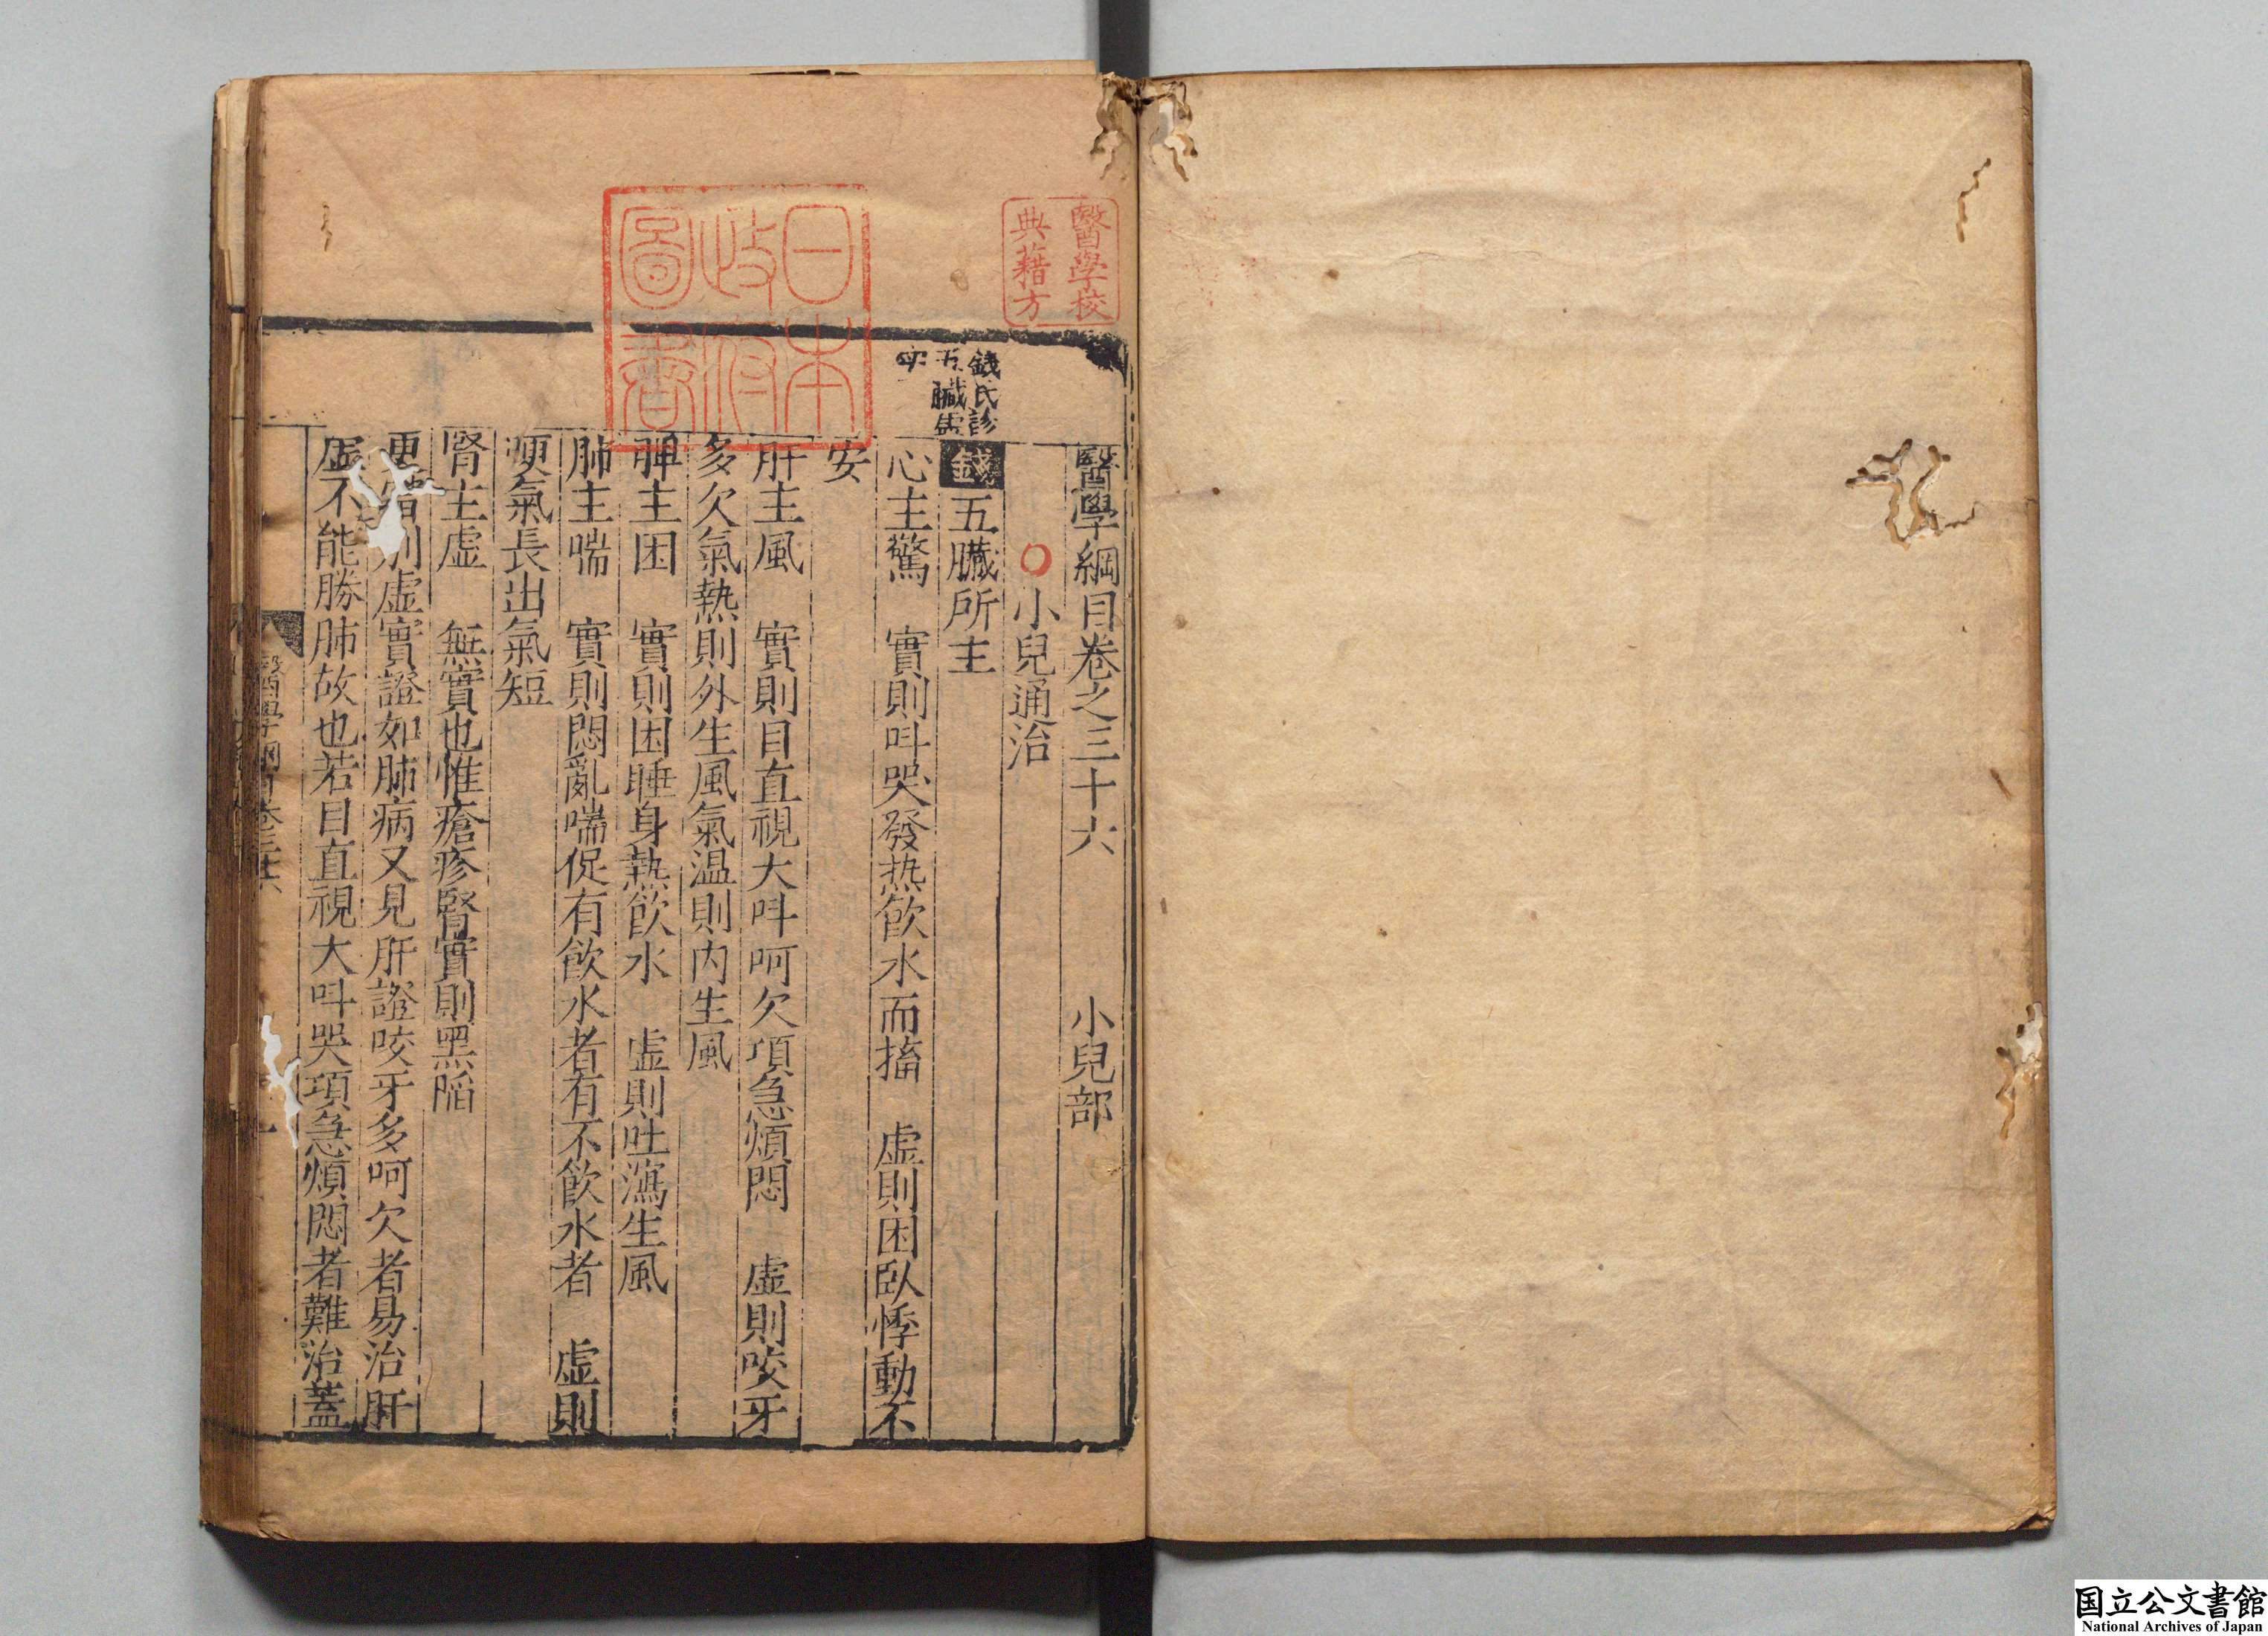 醫學校
典藉方
日本
政府
圖書
醫學綱目卷之三十六 小兒部
○小兒通治
錢氏診
五臟虛
錢五臟所主
心主驚 實則呌哭發热飲水而搐 虛則困臥悸動不
安
肝主風 實則目直視大呌呵欠項急煩悶 虛則咬牙
多欠氣熱則外生風氣温則内生風
脾主困 實則困睡身熱飲水 虛則吐瀉生風
肺主喘 實則悶亂喘促有飲水者有不飲水者 虛則
哽氣長出氣短
腎主虛 無實也惟瘡疹腎實則黑陷
更當別虛實證如肺病又見肝證咬牙多呵欠者易治肝
虛不能勝肺故也若目直視大呌哭項急煩悶者難治蓋
醫學綱目卷三十六
国立公文書館
National Archives of Japan